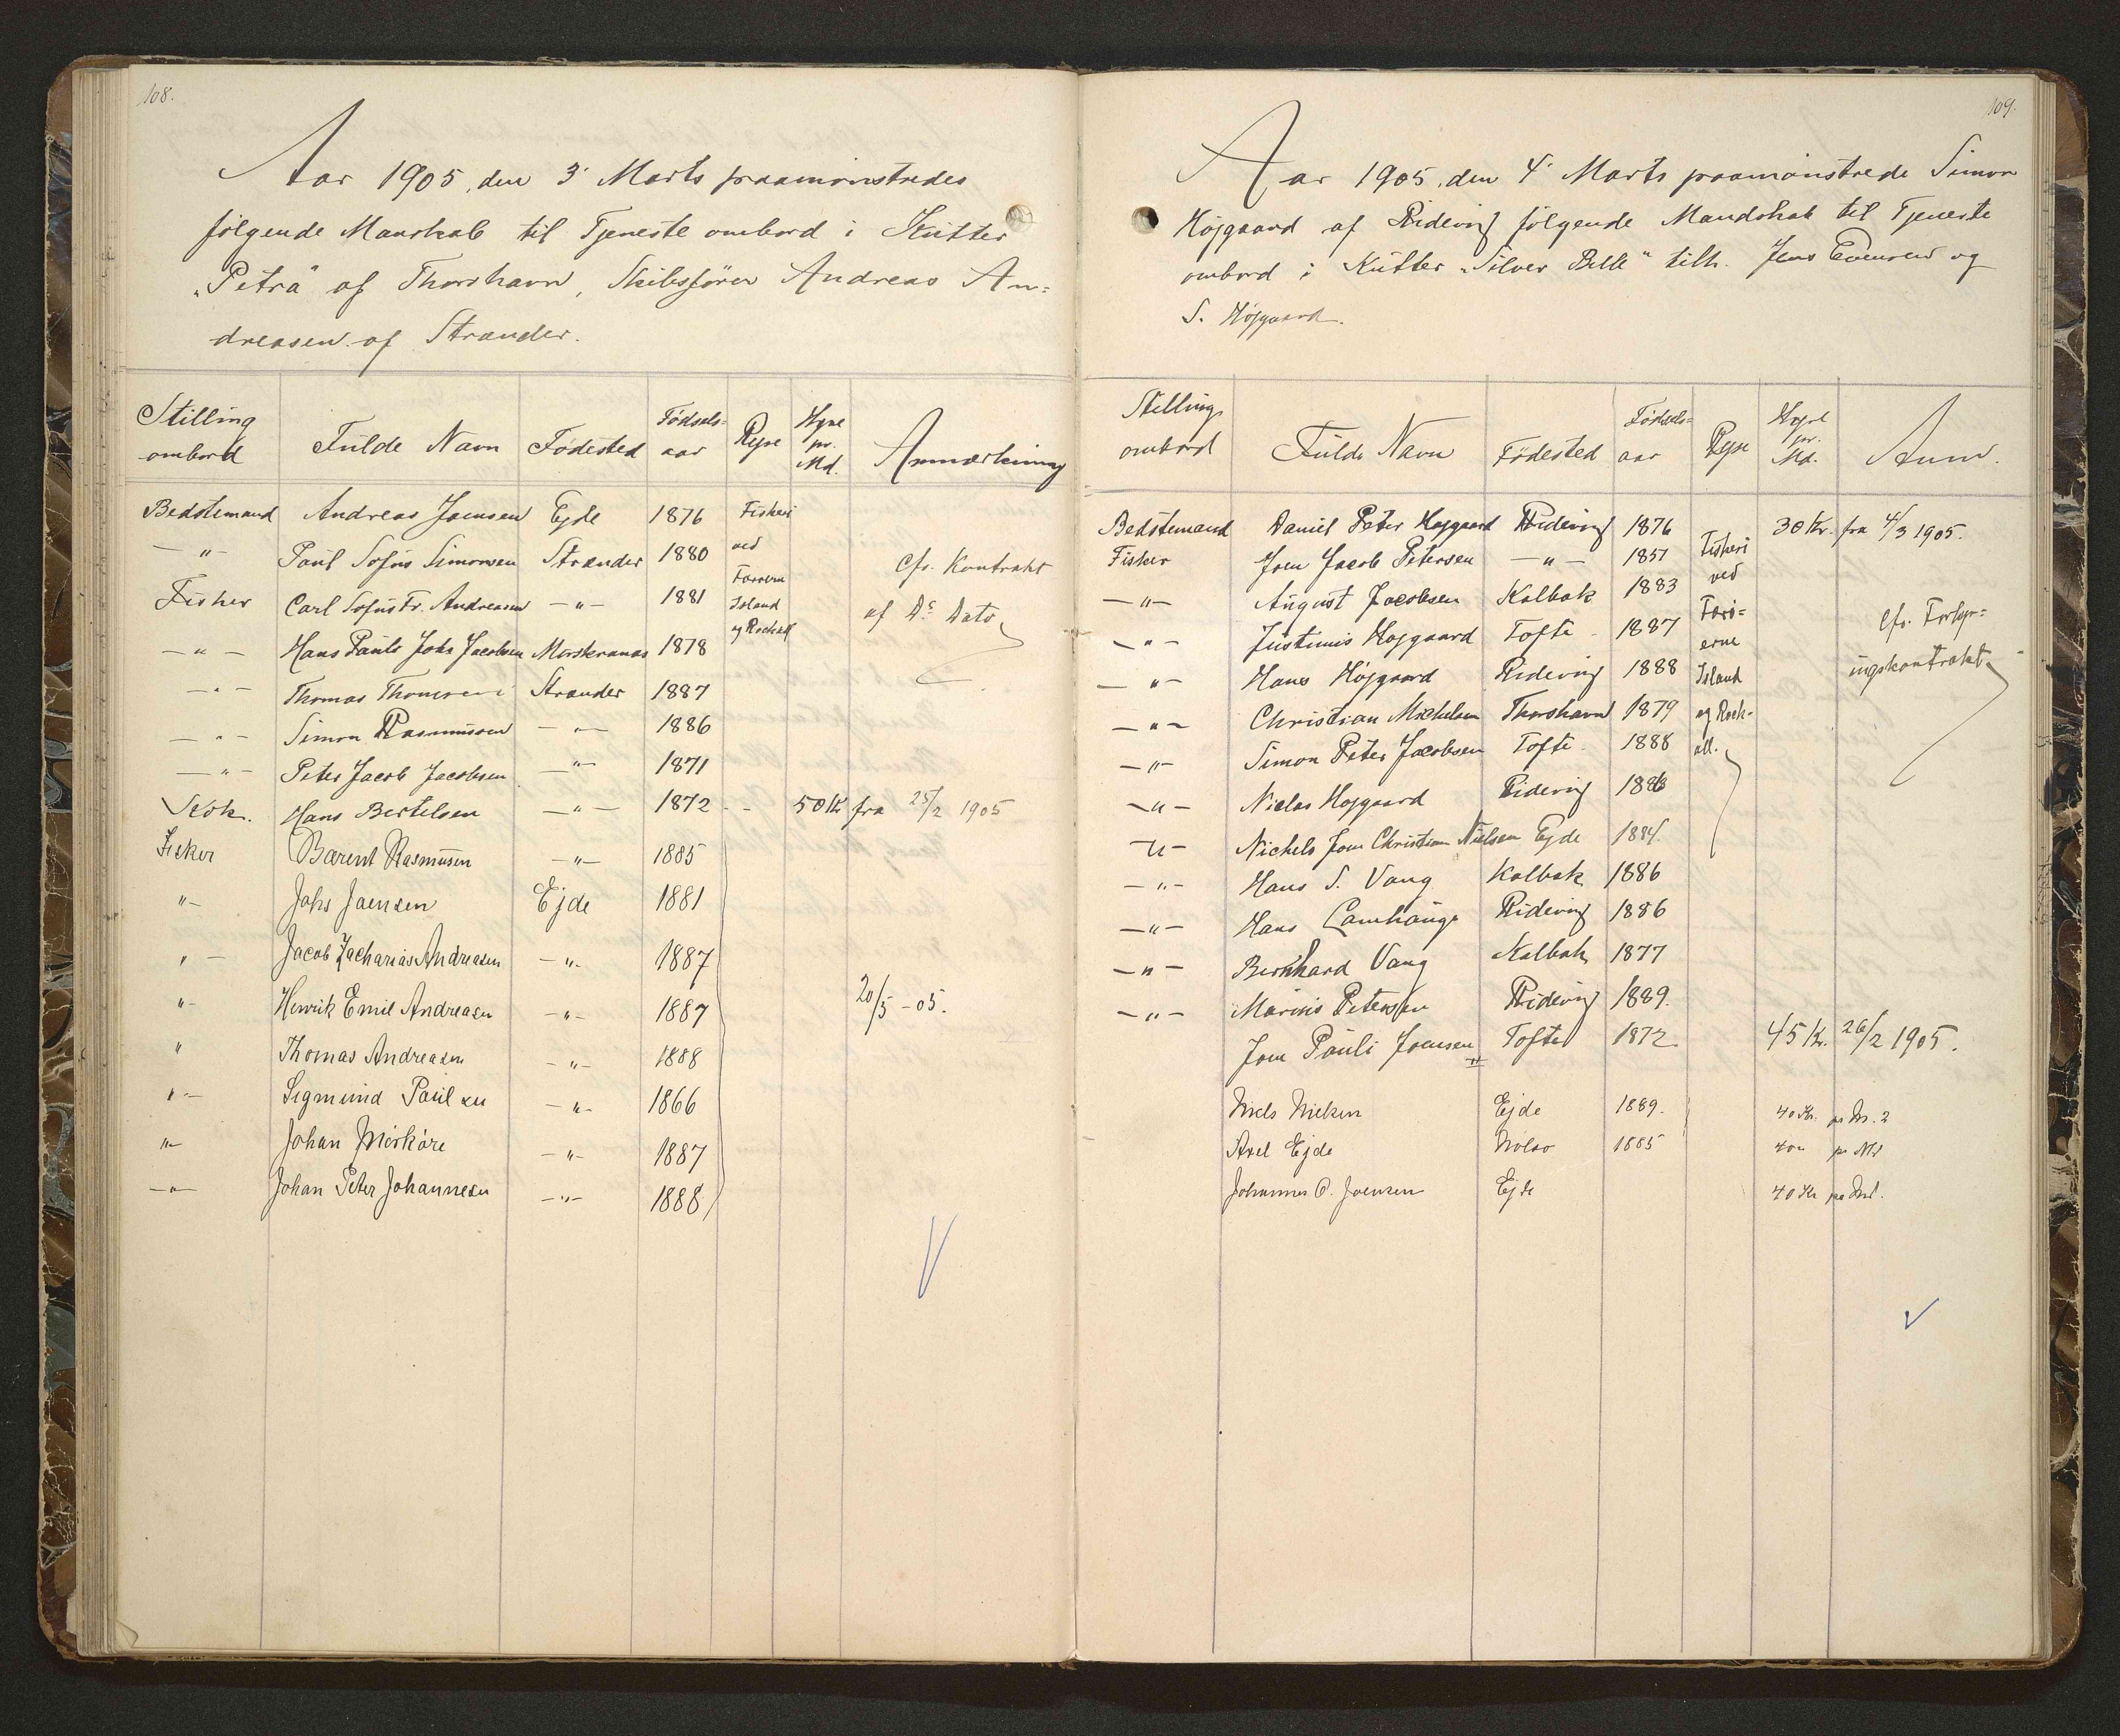 108.
Aar 1905, den 3' Marts paamönstredes
følgende Manskab til Tjeneste ombord i Kutter
„Petra“ af Thorshavn, Skibsfører Andreas An=
dreasen af Strænder.
Stilling ombord Fulde Navn Fødested Fødsels= aar Rejse Hyre pr. Md. Anmærkning
Bedstemand Andreas Joensen Ejde 1876 Fiskeri
—„— Paul Sofus Simonsen Strænder 1880 ved cfr. Kontrakt
Fisker Carl Sofus Fr. Andreasen —„— 1881 Færøerne Island af Ds Dato
—„— Hans Pauli Johs Jacobsen Morskranas 1878 og Rockall
—„— Thomas Thomsen Strænder 1887
—„— Simon Rasmussen —„— 1886
—„— Peter Jacob Jacobsen —„— 1871
Kok. Hans Bertelsen —„— 1872 - - 50 Kr fra 25/2 1905
Fisker Barent Rasmussen —„— 1885
„— Johs Joensen Ejde 1881
„— Jacob Zacharias Andreasen —„— 1887
„— Henrik Emil Andreasen —„— 1887 20/5 -05.
„ Thomas Andreasen —„— 1888
„— Sigmund Paulsen —„— 1866
„— Johan Mörköre —„— 1887
—„— Johan Peter Johannesen —„— 1888
109.
Aar 1905, den 4' Marts paamönstrede Simon
Højgaard af Ridevig følgende Mandskab til Tjeneste
ombord i Kutter „Silver Belle“ tilh. Jens Evensen og
S. Højgaard.
Stilling ombord Fulde Navn Fødested Fødsels= aar Rejse Hyre pr. Md. Anm.
Bedstemand Daniel Peter Højgaard Ridevig 1876 30 Kr. fra 4/3 1905.
Fisker Joen Jacob Petersen —„— 1851 Fiskeri
—„— August Jacobsen Kolbak 1883 ved
—„— Justinus Højgaard Tofte 1887 Færö= erne cfr. Forhyr=
—„— Hans Højgaard Ridevig 1888 Island ingskontrakt
—„— Christian Michelsen Thorshavn 1879 og Rock-
—„— Simon Peter Jacobsen Tofte 1888 all.
—„— Niclas Højgaard Ridevig 1886
—„— Nichels Joen Christian Nielsen Ejde 1884.
—„— Hans S. Vang Kolbak 1886
—„— Hans Lamhauge Ridevig 1886
—„— Bernhard Vang Kolbak 1877
—„— Marius Petersen Ridevig 1889.
Joen Pauli Joensen Tofte 1872. 45 Kr. 26/2 1905.
Niels Nielsen Ejde 1889. 40 Kr. pr M.
Axel Ejde Nolsø 1885 40 „ pr Md
Johannes P. Joensen Ejde 40 Kr pr Md.